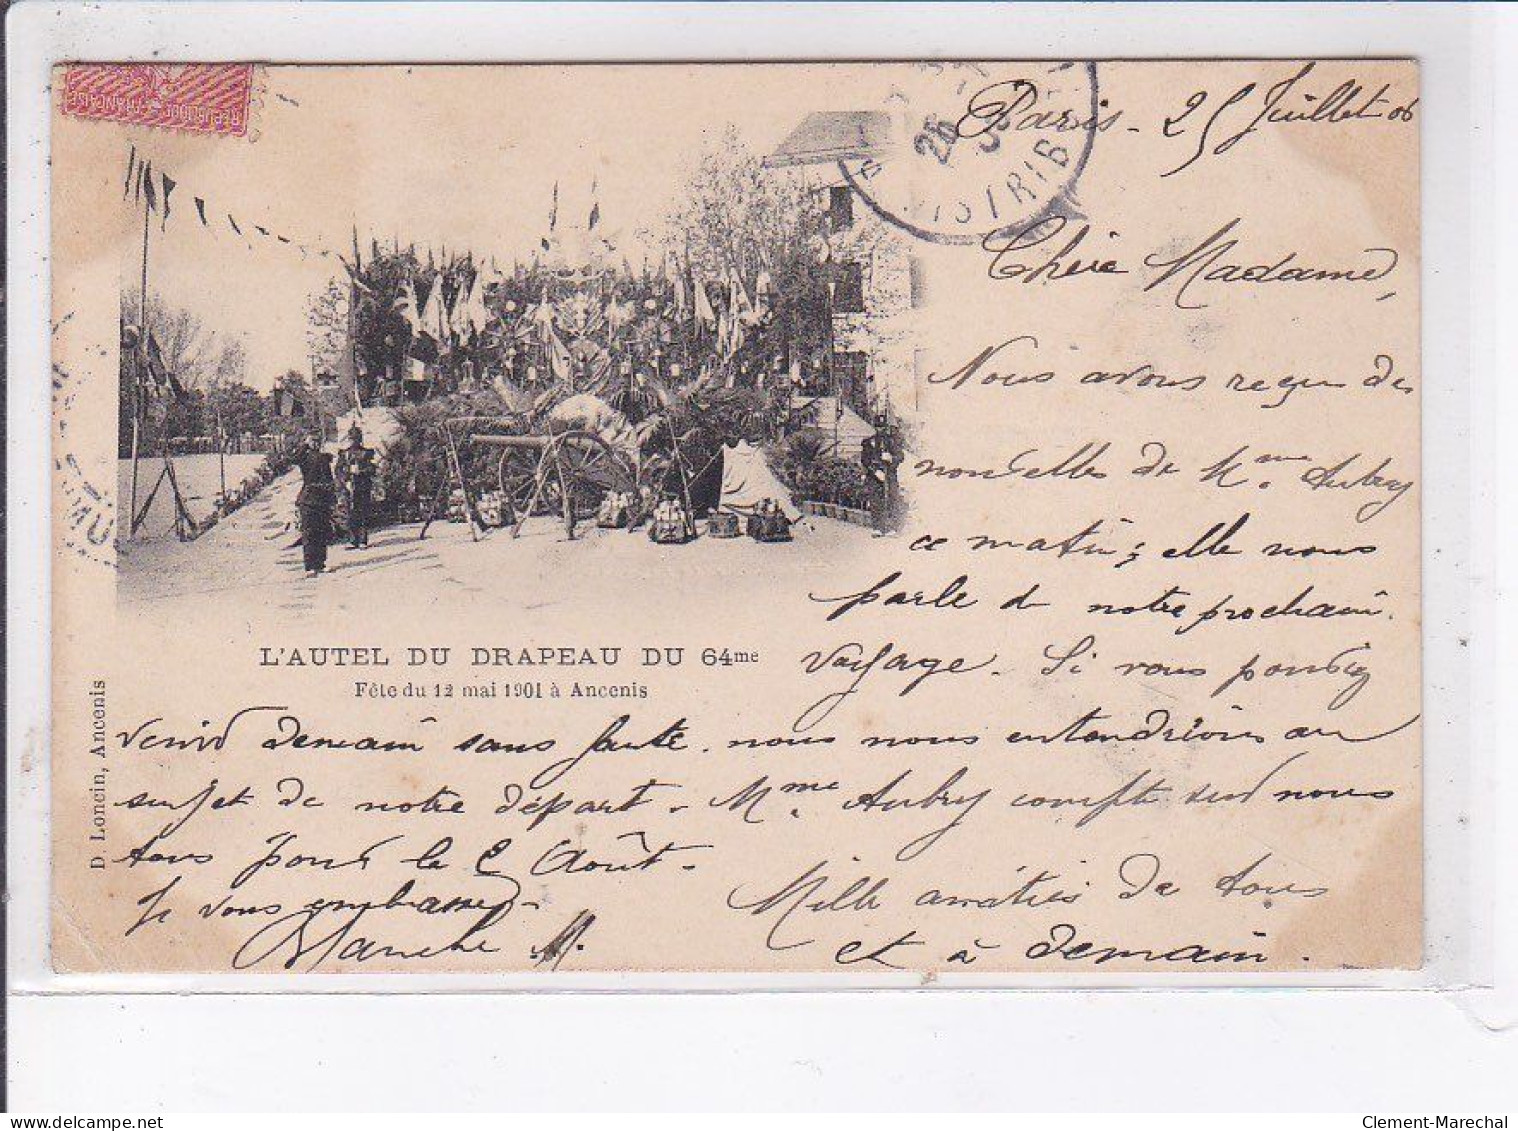 RÉPUBLIQUE FRANÇAISE
DISTRIB
26
Paris - 25 Juillet 06
Chère Madame,
Nous avons reçu des
nouvelles de Mme. Aubry
ce matin ; elle nous
parle de notre prochain
voyage. Si vous pouviez
venir demain sans faute. nous nous entendrions au
sujet de notre départ - Mme. Aubry compte sur nous
tous pour le 2 Août -
Je vous embrasse -
Blanche M.
Mille amitiés de tous
et à demain.
L'AUTEL DU DRAPEAU DU 64me
Fête du 12 mai 1901 à Ancenis
D. Loncin, Ancenis
Clement-Marechal
delcampe.net